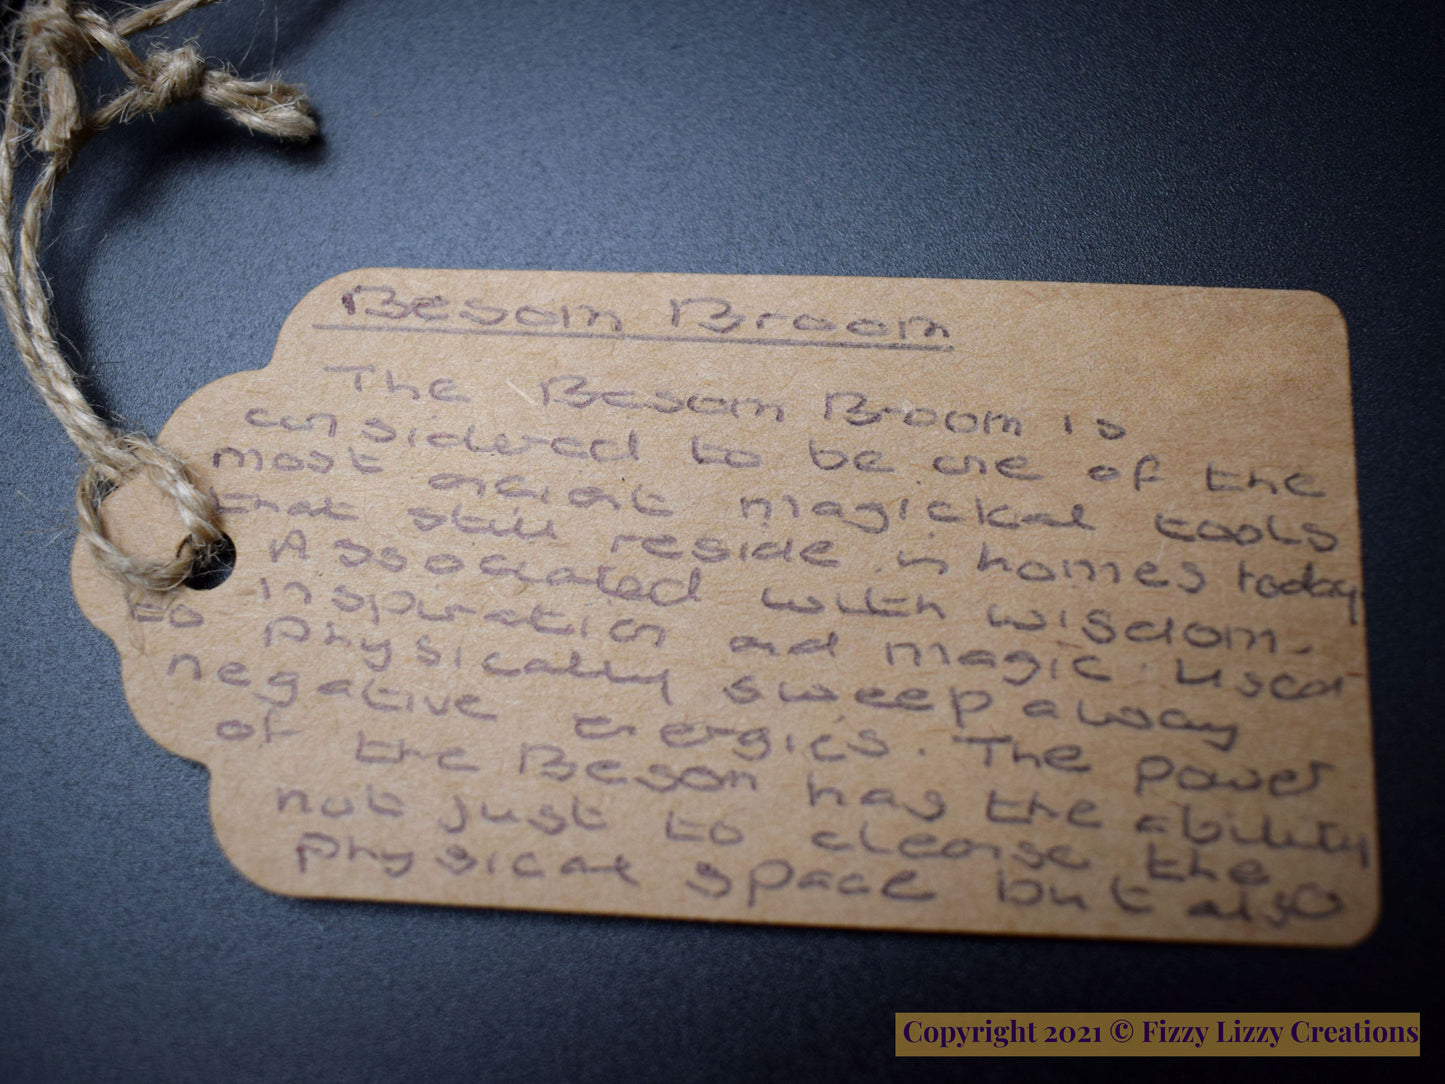 Besom Broom
The Besom Broom is
considered to be one of the
most ancient magickal tools
that still reside in homes today.
Associated with wisdom.
inspiration and magic. Used
to physically sweep away
negative energies. The power
of the Besom has the ability
not just to cleanse the
physical space but also
Copyright 2021 © Fizzy Lizzy Creations